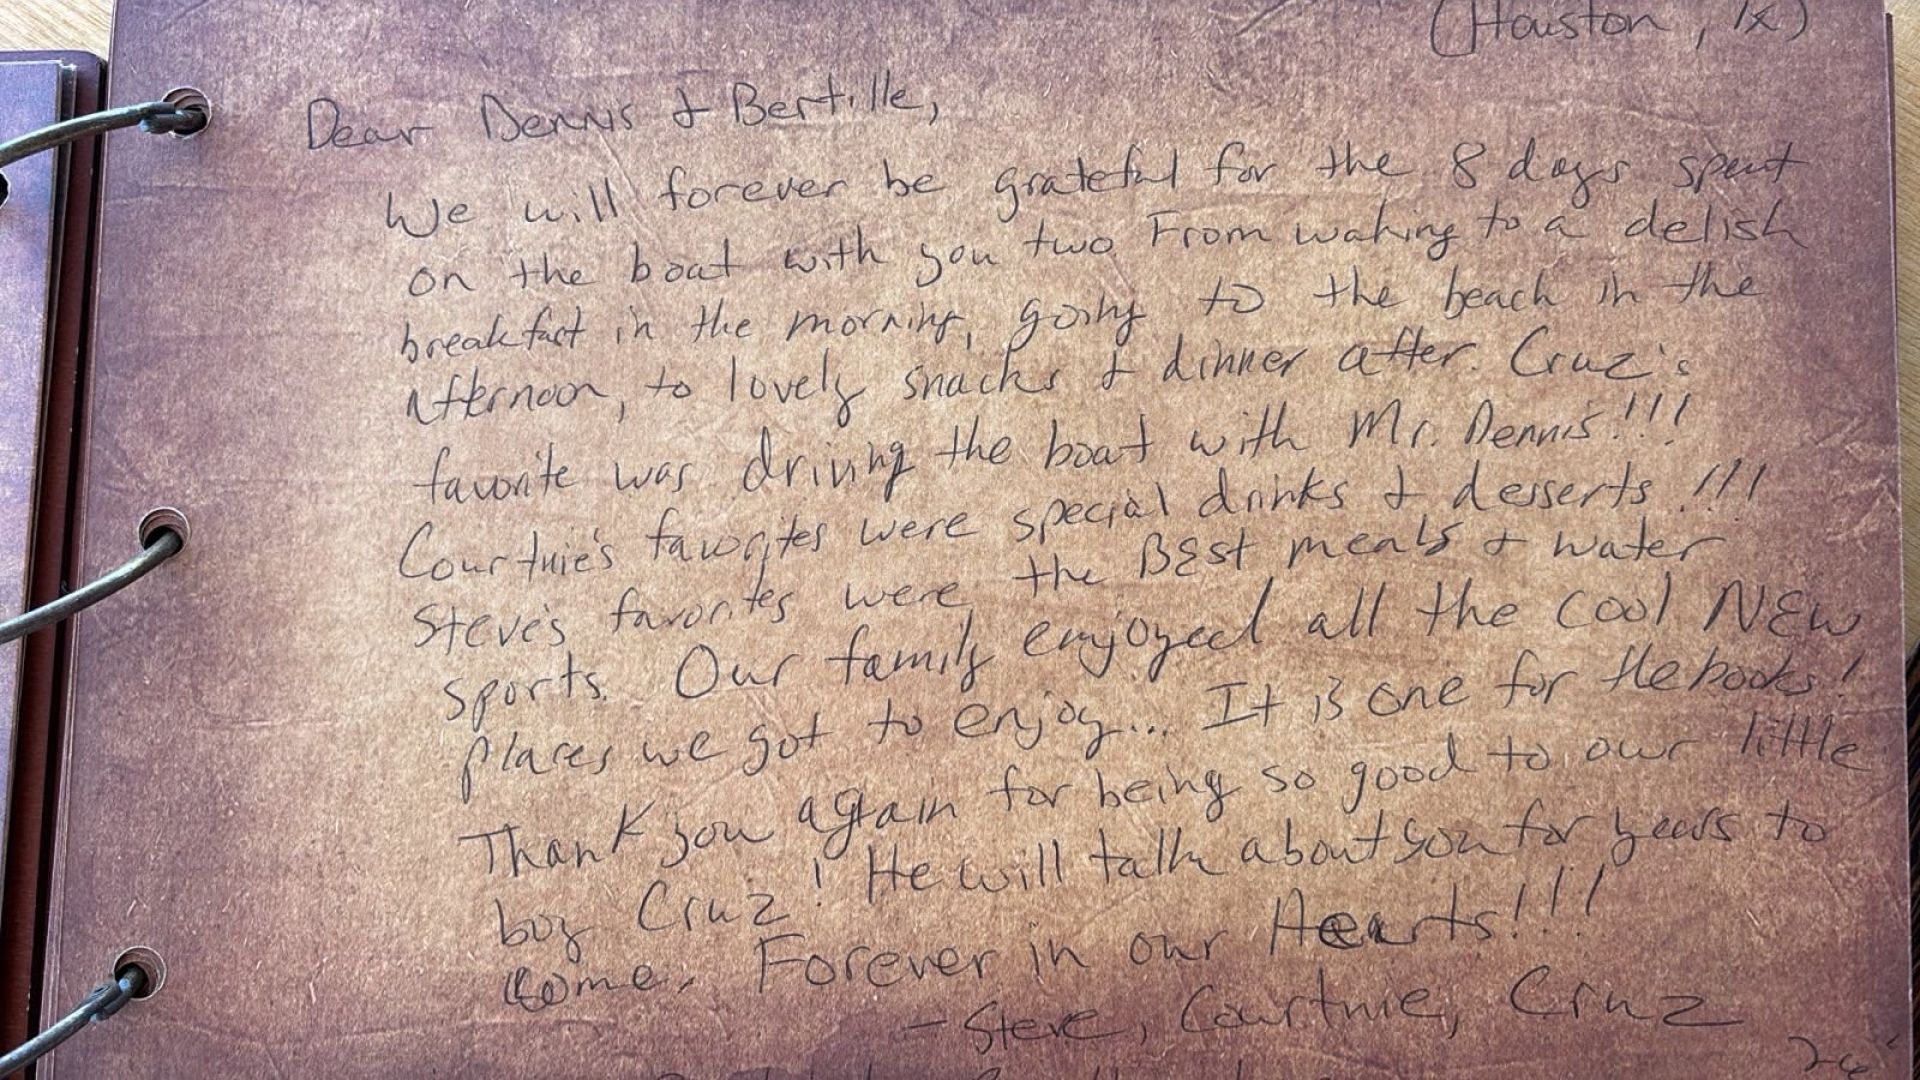 (Houston, Tx)
Dear Dennis & Bertille,
We will forever be grateful for the 8 days spent
on the boat with you two. From waking to a delish
breakfast in the morning, going to the beach in the
afternoon, to lovely snacks & dinner after. Cruz's
favorite was driving the boat with Mr. Dennis!!!
Courtnie's favorites were special drinks & desserts!!!
Steve's favorites were the BEST meals & water
sports. Our family enjoyed all the cool NEW
places we got to enjoy... It is one for the books!
Thank you again for being so good to our little
boy Cruz! He will talk about you for years to
come. Forever in our Hearts!!!
- Steve, Courtnie, Cruz